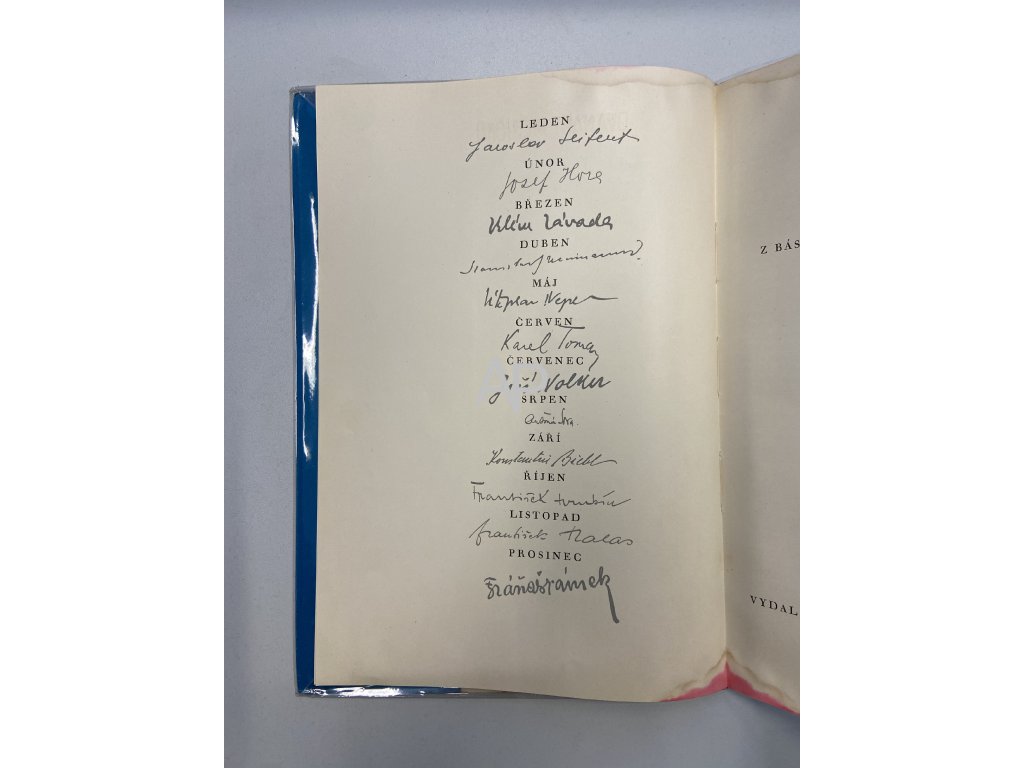 LEDEN
Jaroslav Seifert
ÚNOR
Josef Hora
BŘEZEN
Vilém Závada
DUBEN
Stanislav K Neumann
MÁJ
Vítězslav Nezval
ČERVEN
Karel Toman
ČERVENEC
Jiří Wolker
SRPEN
Antonín Sova.
ZÁŘÍ
Konstantin Biebl
ŘÍJEN
František Hrubín
LISTOPAD
František Halas
PROSINEC
Fráňa Šrámek
AP
Z BÁS
VYDAL